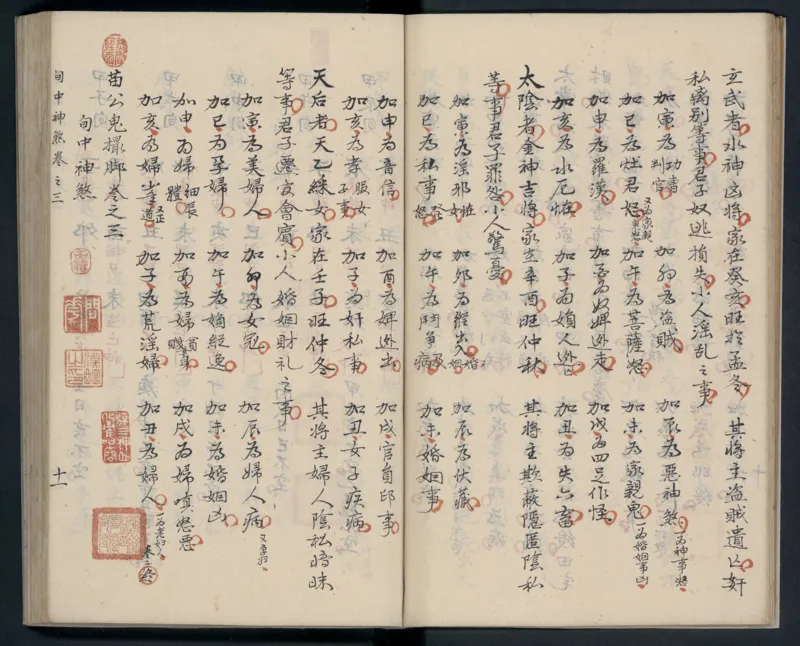 玄武者水神凶將家在癸亥旺於孟冬其將主盜賊遺亡奸
私離別等事君子奴逃損失小人淫乱之事
加寅為功曹判官 加卯為盜賊 加辰為惡神煞一為神事
加巳為灶君怒 加午為菩薩怒 加未為家親鬼一為婚姻事凶
加申為羅漢 加酉為奴婢逃走 加戌為四足作怪
加亥為水厄怪 加子為婦人逃 加丑為失六畜
太陰者金神吉將家在辛酉旺仲秋其將主欺蔽隱匿陰私
等事君子罪咎小人驚憂
加寅為淫邪 加卯為 出入 加辰為伏藏
加巳為私事 加午為鬥爭 加未婚姻事
加申為音信 加酉為婢逃出 加戌官員印事
加亥為孝服女子事 加子為奸私事 加丑女子疾病
天后者天乙 女家在壬子旺仲冬其將主婦人陰私暗昧
等事君子遷 會賓小人婚姻財礼之事
加寅為美婦人 加卯為女冠 加辰為婦人病
加巳為孕婦 加午為 縱逸 加未為婚姻凶
加申為婦 加酉為婦 加戌為婦嗔怒惡
加亥為婦 加子為荒淫婦 加丑為婦人一為老婦人 卷三終
苗公鬼撮脚卷之三
旬中神煞
旬中神煞卷之三
十一